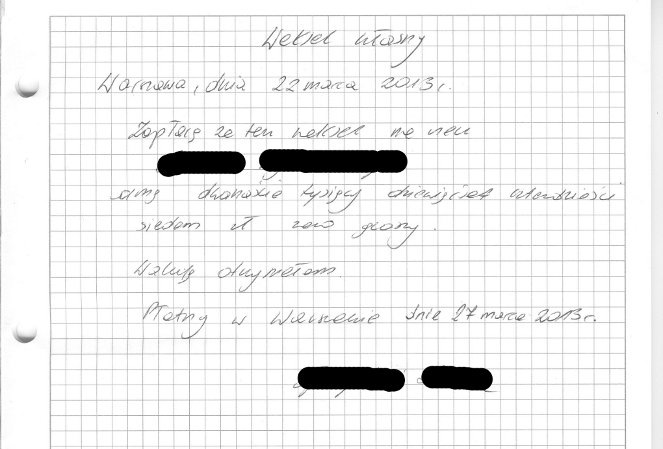 Weksel własny
Warszawa, dnia 22 marca 2013r.
Zapłacę za ten weksel na rzecz
sumę dwanaście tysięcy dziewięćset czterdzieści
siedem zł zero groszy.
Walutę otrzymałam.
Płatny w Warszawie dnia 27 marca 2013r.